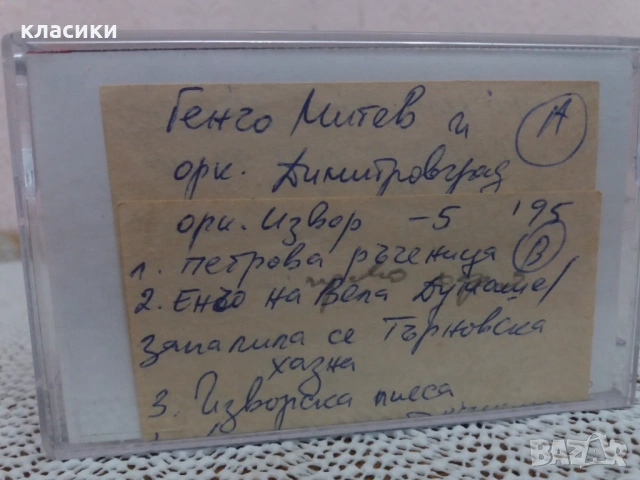 класики
Генчо Митев и А
орк. Димитровград
орк. Извор -5 195
1. Петрова ръченица В
2. Енчо на Вела думаше/
Запалила се Търновска
хазна
3. Изворска пиеса
BAZAR